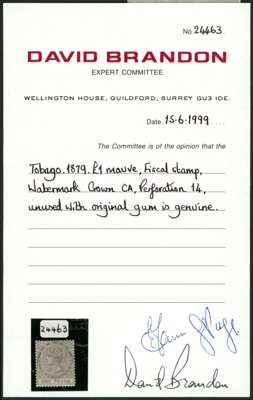 No. 24463.
DAVID BRANDON
EXPERT COMMITTEE
WELLINGTON HOUSE, GUILDFORD, SURREY GU3 1DE.
Date 15-6-1999
The Committee is of the opinion that the
Tobago. 1879. £1 mauve, Fiscal stamp,
Watermark Crown CA, Perforation 14,
unused with original gum is genuine.
24463
David Brandon